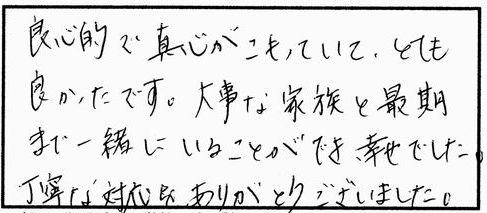 良心的で真心がこもっていて、とても
良かったです。大事な家族と最期
まで一緒にいることができ、幸せでした。
丁寧な対応をありがとうございました。